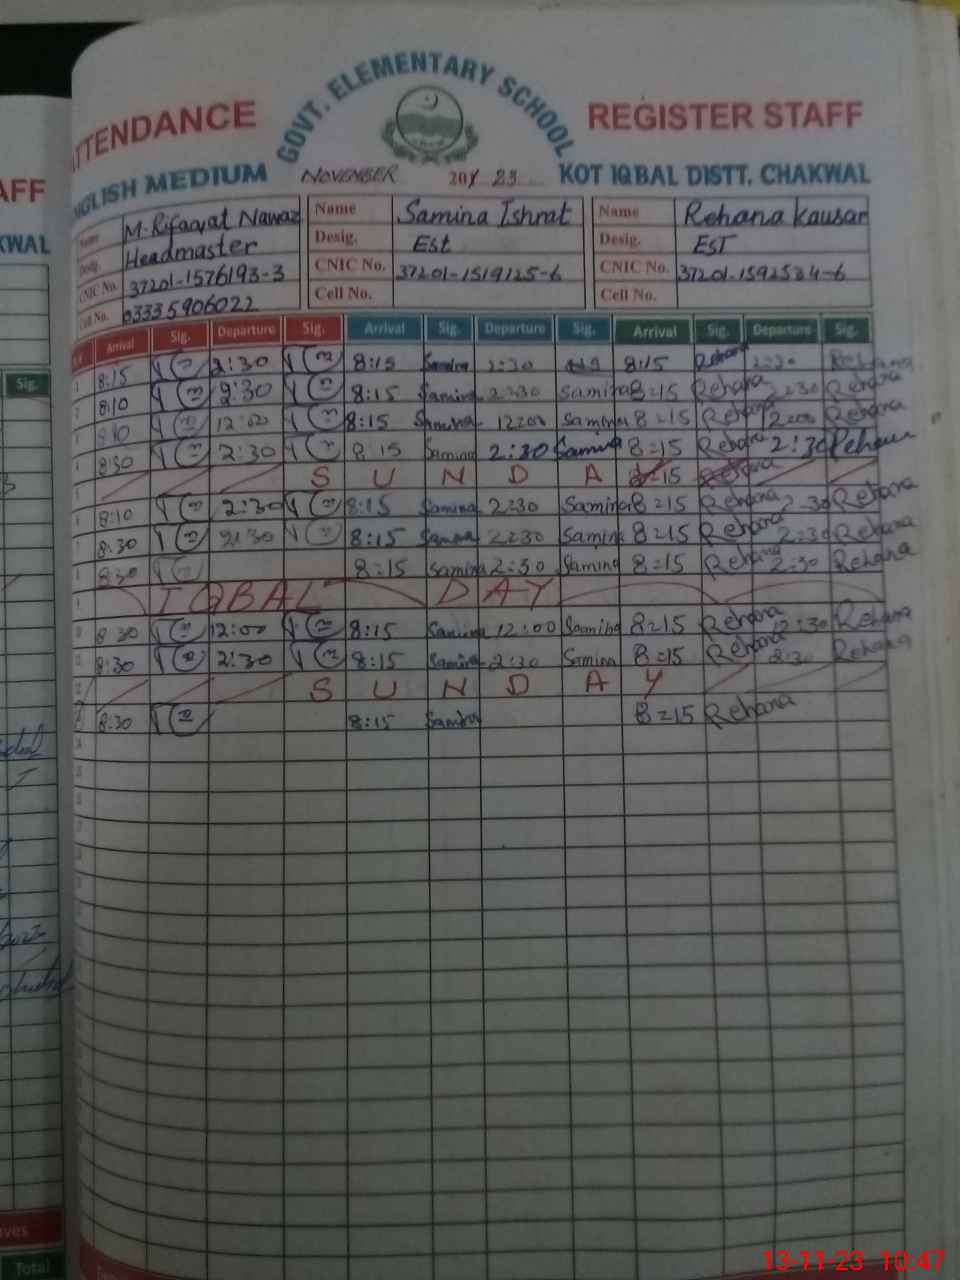 GOVT. ELEMENTARY SCHOOL
ATTENDANCE REGISTER STAFF
ENGLISH MEDIUM NOVEMBER 2023 KOT IQBAL DISTT. CHAKWAL
AFF
KWAL
Name M. Rifaqat Nawaz Name Samina Ishrat Name Rehana Kausar
Desig. Headmaster Desig. Est Desig. EST
CNIC No. 37201-1576193-3 CNIC No. 37201-1519125-6 CNIC No. 37201-1592534-6
Cell No. 03335906022 Cell No. Cell No.
Arrival Sig. Departure Sig. Arrival Sig. Departure Sig. Arrival Sig. Departure Sig.
Sig.
8:15 2:30 8:15 Samina 2:30 8:15 Rehana 2:30 Rehana
8:10 2:30 8:15 Samina 2:30 Samina 8=15 Rehana 2=30 Rehana
8:10 12:00 8:15 Samina 12:00 Samina 8=15 Rehana 12=00 Rehana
8:30 2:30 8:15 Samina 2:30 Samina 8=15 Rehana 2:30 Rehana
S U N D A 8=15 Rehana
8:10 2:30 8:15 Samina 2:30 Samina 8=15 Rehana 2=30 Rehana
8:30 2:30 8:15 Samina 2:30 Samina 8=15 Rehana 2=30 Rehana
8:30 8:15 Samina 2:30 Samina 8=15 Rehana 2:30 Rehana
IQBAL DAY
8:30 12:00 8:15 Samina 12:00 Samina 8=15 Rehana 12:30 Rehana
8:30 2:30 8:15 Samina 2:30 Samina 8=15 Rehana 2:30 Rehana
S U N D A Y
8:30 8:15 Samina 8=15 Rehana
Total
13-11-23 10:47